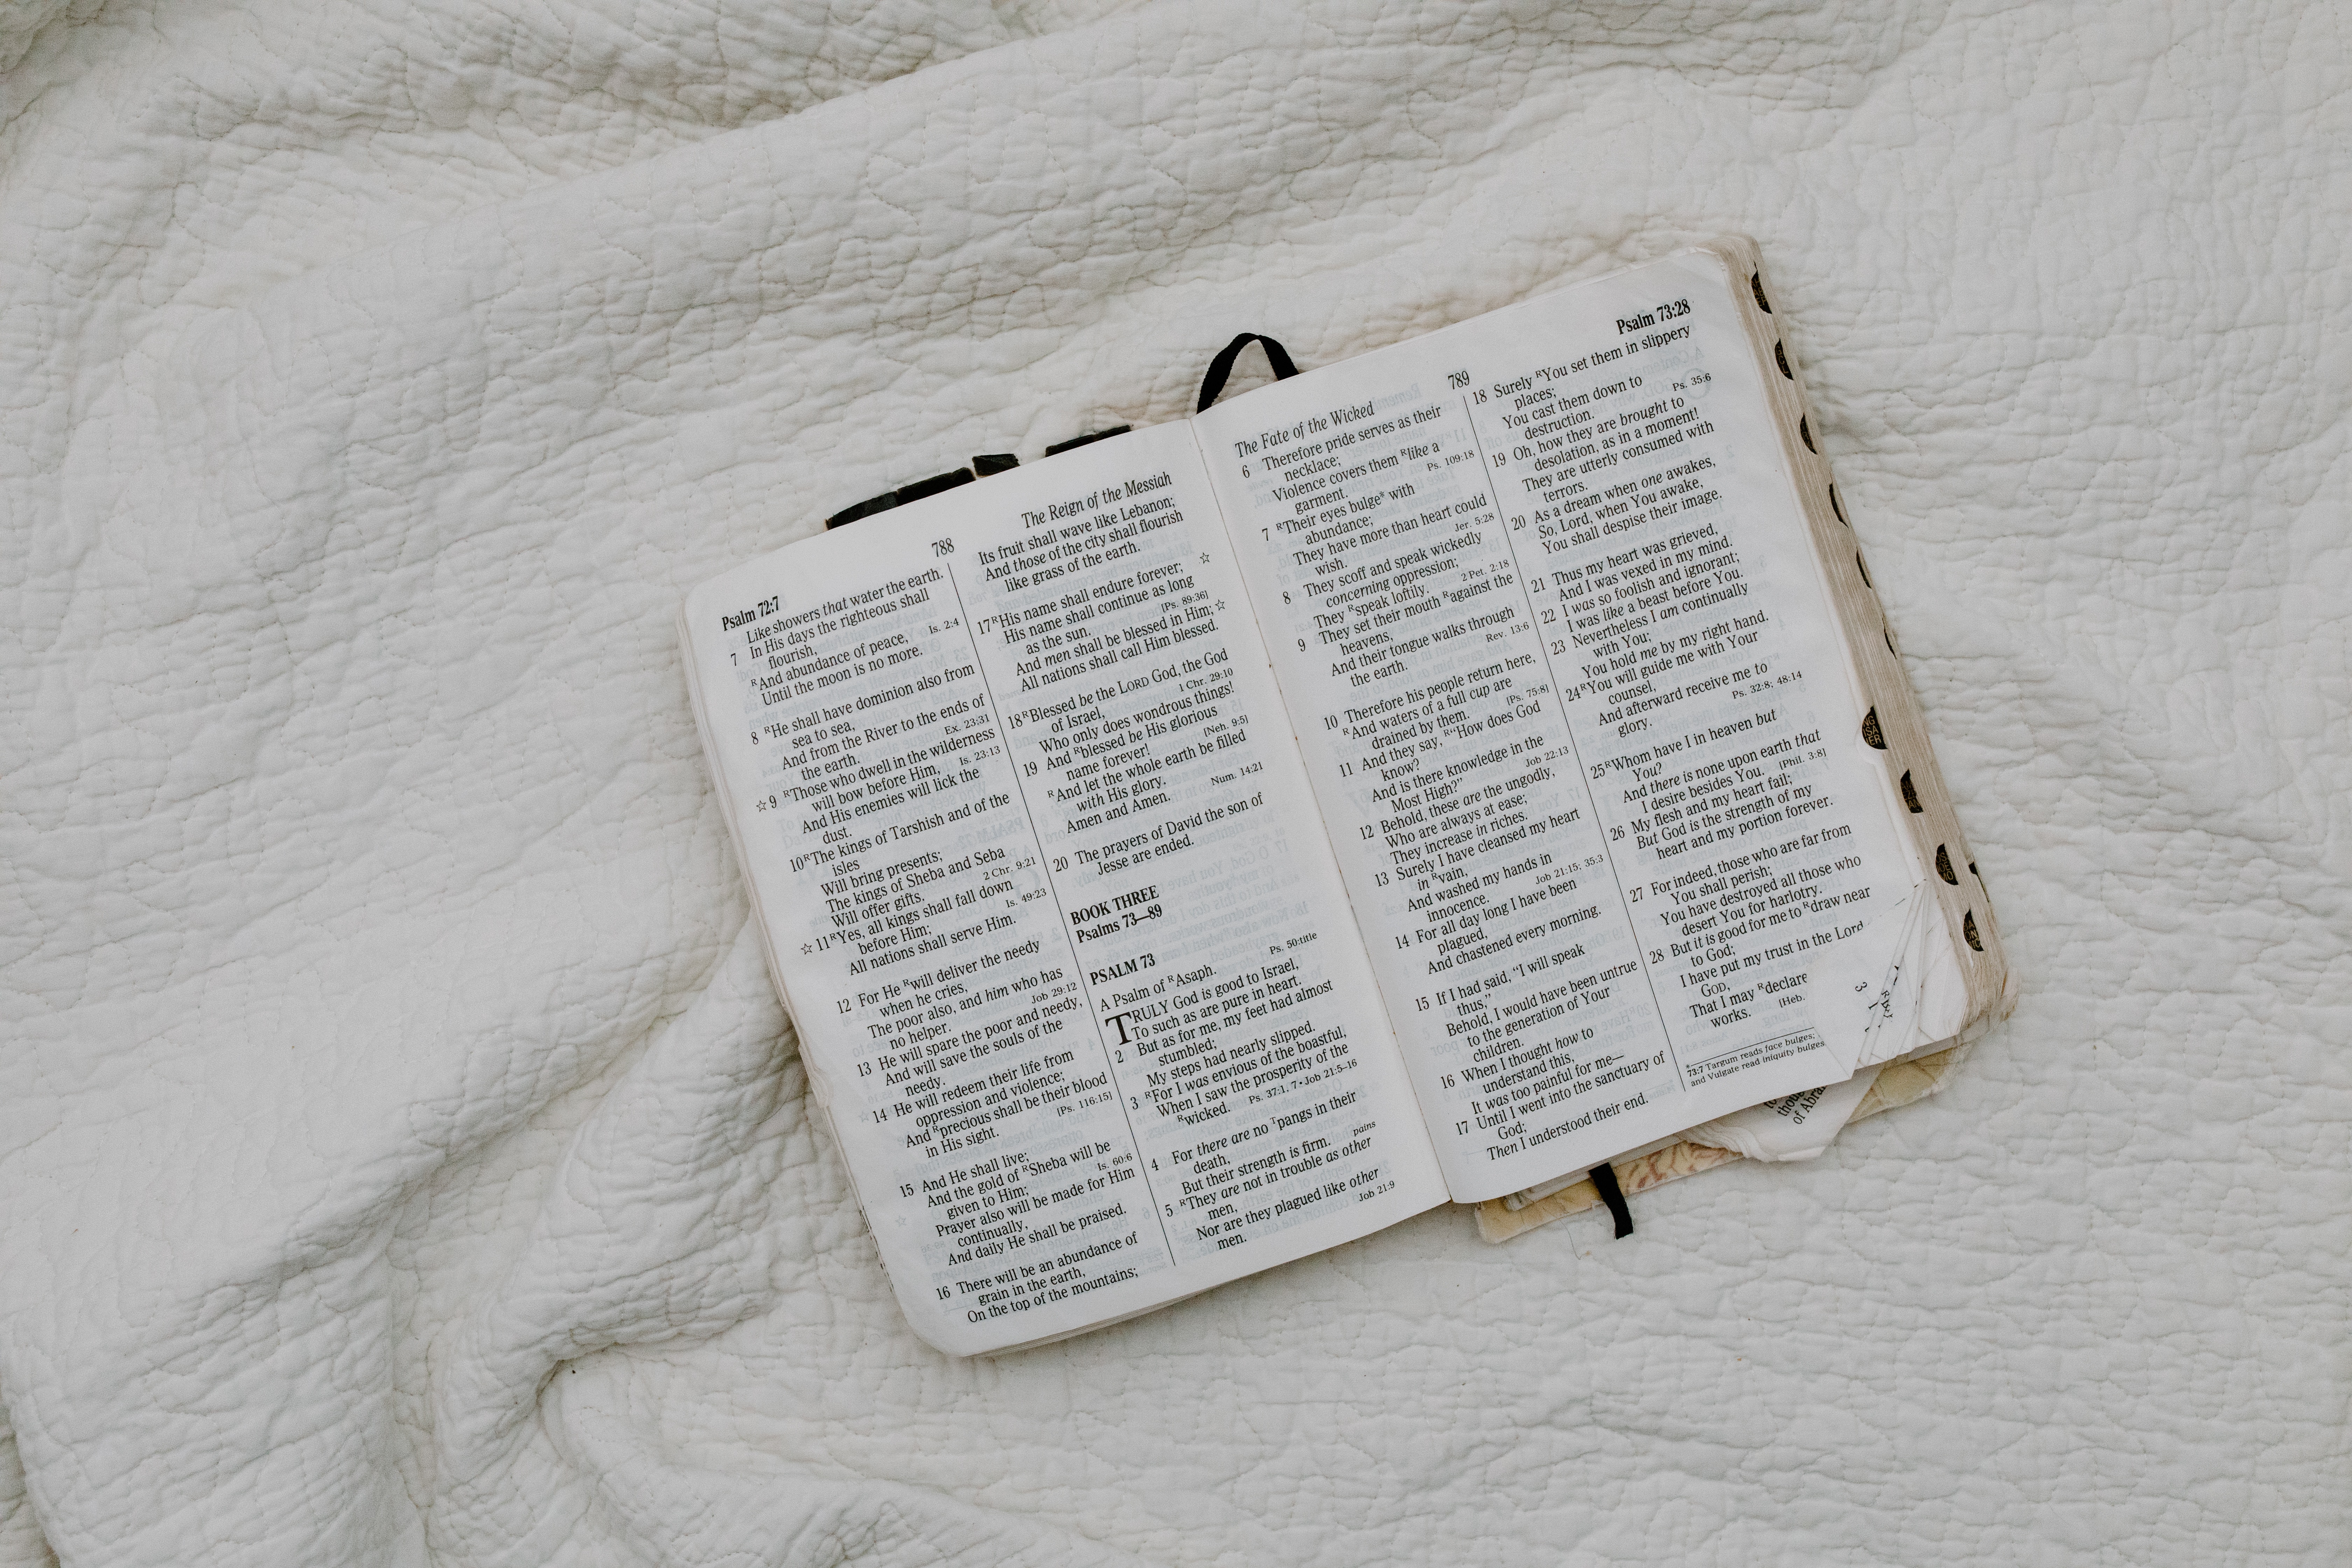 Psalm 72:7
788
The Reign of the Messiah
Like showers that water the earth.
7 In His days the righteous shall
flourish,
Is. 2:4
ᴿAnd abundance of peace,
Until the moon is no more.
8 ᴿHe shall have dominion also from
sea to sea,
And from the River to the ends of
the earth.
Ex. 23:31
☆9 ᴿThose who dwell in the wilderness
will bow before Him,
Is. 23:13
And His enemies will lick the
dust.
10ᴿThe kings of Tarshish and of the
isles
Will bring presents;
The kings of Sheba and Seba
Will offer gifts.
2 Chr. 9:21
☆ 11ᴿYes, all kings shall fall down
before Him;
Is. 49:23
All nations shall serve Him.
12 For He ᴿwill deliver the needy
when he cries,
The poor also, and him who has
no helper.
Job 29:12
13 He will spare the poor and needy,
And will save the souls of the
needy.
14 He will redeem their life from
oppression and violence;
And ᴿprecious shall be their blood
in His sight.
[Ps. 116:15]
15 And He shall live;
And the gold of ᴿSheba will be
given to Him;
Is. 60:6
Prayer also will be made for Him
continually,
And daily He shall be praised.
16 There will be an abundance of
grain in the earth,
On the top of the mountains;
Its fruit shall wave like Lebanon;
And those of the city shall flourish
like grass of the earth.
☆
17ᴿHis name shall endure forever;
His name shall continue as long
as the sun.
[Ps. 89:36]
And men shall be blessed in Him;☆
All nations shall call Him blessed.
18ᴿBlessed be the LORD God, the God
of Israel,
1 Chr. 29:10
Who only does wondrous things!
19 And ᴿblessed be His glorious
name forever!
[Neh. 9:5]
ᴿAnd let the whole earth be filled
with His glory.
Num. 14:21
Amen and Amen.
20 The prayers of David the son of
Jesse are ended.
BOOK THREE
Psalms 73—89
PSALM 73
Ps. 50:title
A Psalm of ᴿAsaph.
TRULY God is good to Israel,
To such as are pure in heart.
2 But as for me, my feet had almost
stumbled;
My steps had nearly slipped.
3 ᴿFor I was envious of the boastful,
When I saw the prosperity of the
ᴿwicked. Ps. 37:1, 7 • Job 21:5–16
4 For there are no ᵀpangs in their
death,
pains
But their strength is firm.
5 ᴿThey are not in trouble as other
men,
Nor are they plagued like other
men.
Job 21:9
The Fate of the Wicked
789
Psalm 73:28
6 Therefore pride serves as their
necklace;
Violence covers them ᴿlike a
garment.
Ps. 109:18
7 ᴿTheir eyes bulge* with
abundance;
They have more than heart could
wish.
Jer. 5:28
8 They scoff and speak wickedly
concerning oppression;
They ᴿspeak loftily.
2 Pet. 2:18
9 They set their mouth ᴿagainst the
heavens,
And their tongue walks through
the earth.
Rev. 13:6
10 Therefore his people return here,
ᴿAnd waters of a full cup are
drained by them.
[Ps. 75:8]
11 And they say, ᴿ“How does God
know?
And is there knowledge in the
Most High?”
Job 22:13
12 Behold, these are the ungodly,
Who are always at ease;
They increase in riches.
13 Surely I have cleansed my heart
in ᴿvain,
And washed my hands in
innocence.
Job 21:15; 35:3
14 For all day long I have been
plagued,
And chastened every morning.
15 If I had said, “I will speak
thus,”
Behold, I would have been untrue
to the generation of Your
children.
16 When I thought how to
understand this,
It was too painful for me—
17 Until I went into the sanctuary of
God;
Then I understood their end.
18 Surely ᴿYou set them in slippery
places;
You cast them down to
destruction.
Ps. 35:6
19 Oh, how they are brought to
desolation, as in a moment!
They are utterly consumed with
terrors.
20 As a dream when one awakes,
So, Lord, when You awake,
You shall despise their image.
21 Thus my heart was grieved,
And I was vexed in my mind.
22 I was so foolish and ignorant;
I was like a beast before You.
23 Nevertheless I am continually
with You;
You hold me by my right hand.
24ᴿYou will guide me with Your
counsel,
And afterward receive me to
glory.
Ps. 32:8; 48:14
25ᴿWhom have I in heaven but
You?
And there is none upon earth that
I desire besides You. [Phil. 3:8]
26 My flesh and my heart fail;
But God is the strength of my
heart and my portion forever.
27 For indeed, those who are far from
You shall perish;
You have destroyed all those who
desert You for harlotry.
28 But it is good for me to ᴿdraw near
to God;
I have put my trust in the Lord
GOD,
That I may ᴿdeclare
works.
[Heb.
*73:7 Targum reads face bulges;
and Vulgate read iniquity bulges
3
of Abra